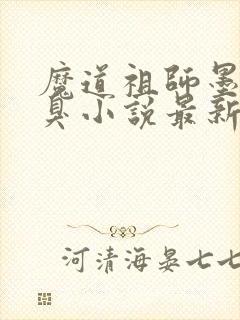 魔道祖師墨
臭小說最新
河清海晏七七